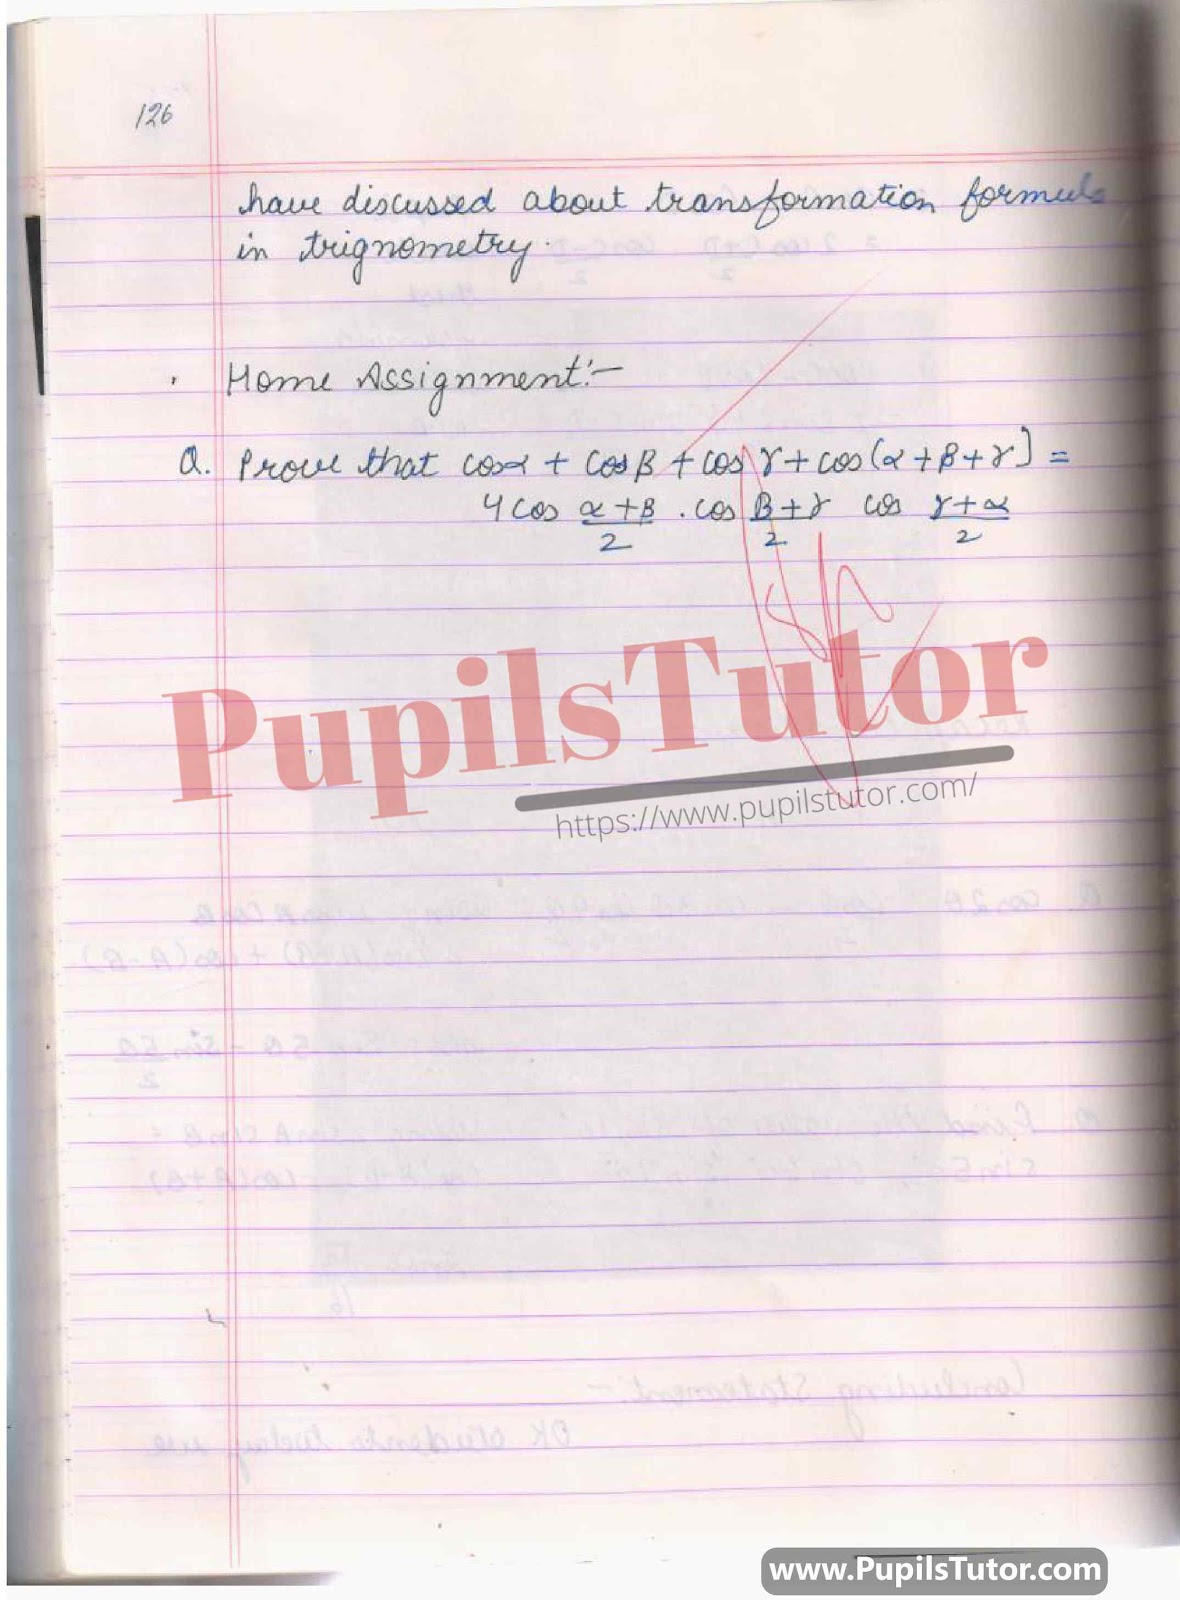 126
have discussed about transformation formula
in trignometry.
. Home Assignment:-
Q. Prove that cosα + cosβ + cos γ + cos(α + β + γ) =
4 cos α + β/2 . cos β + γ/2 cos γ + α/2
PupilsTutor
https://www.pupilstutor.com/
www.PupilsTutor.com